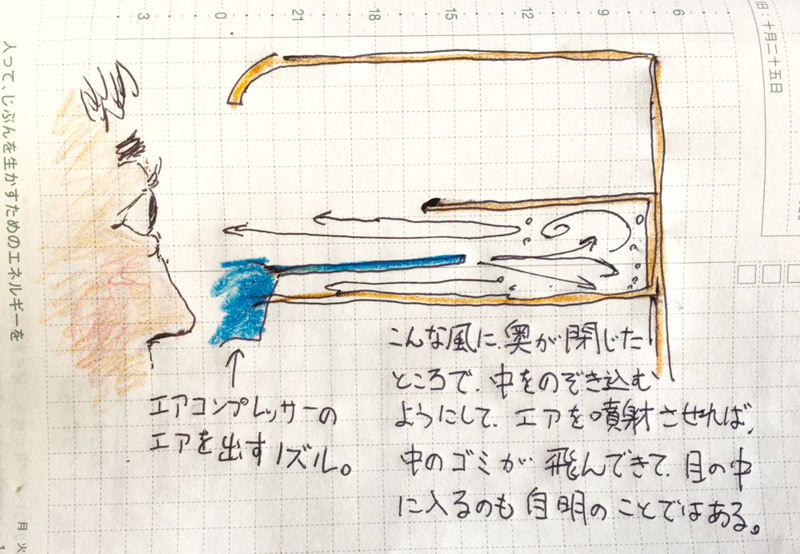 3
0
21
18
15
12
9
6
日:十月二十五日
人って、じぶんを生かすためのエネルギーを
月 火
エアコンプレッサーの
エアを出すノズル。
こんな風に、奥が閉じた
ところで、中をのぞき込む
ようにして、エアを噴射させれば、
中のゴミが飛んできて、目の中
に入るのも自明のことではある。